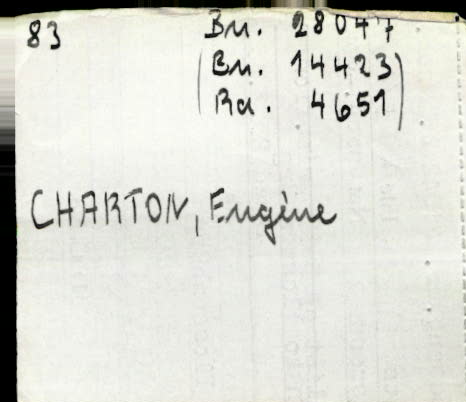 83 Bu. 28047
(Bu. 14423)
(Ra. 4651)
CHARTON, Eugène